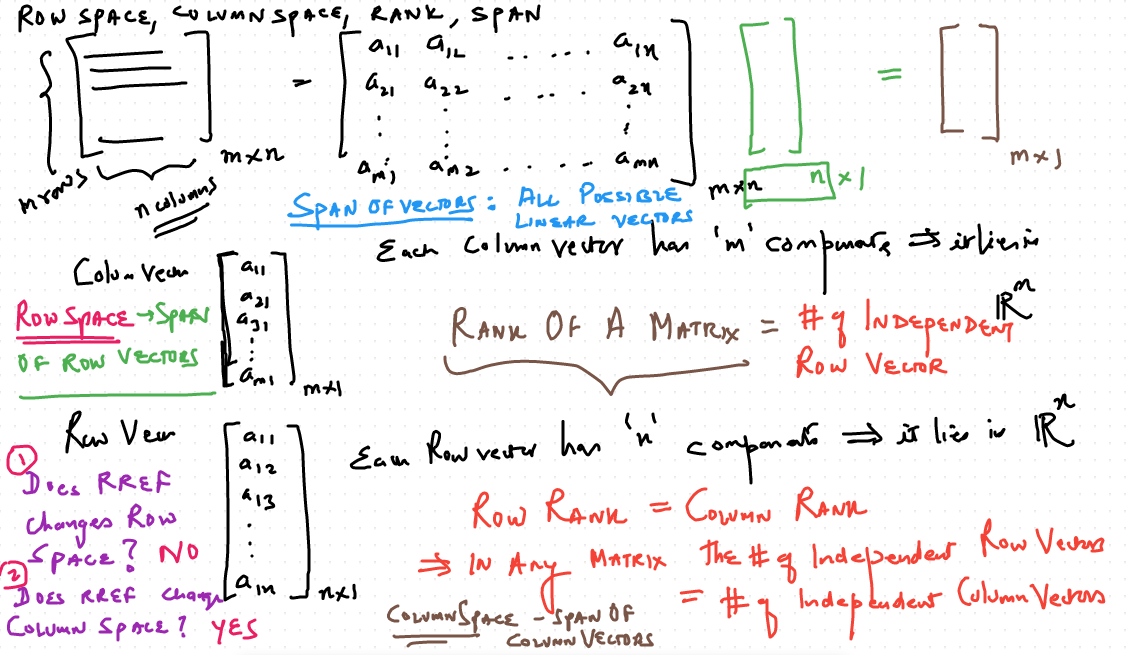 ROW SPACE, COLUMN SPACE, RANK, SPAN
m rows
n columns
m×n
=
a11 a12 ..... a1n
a21 a22 ..... a2n
⋮ ⋮ ⋮
am1 am2 ..... amn
m×n
n ×1
=
m×1
SPAN OF VECTORS: ALL POSSIBLE
LINEAR VECTORS
Each Column vector has 'm' components ⇒ it lies in
ℝᵐ
Column Vector
a11
a21
a31
⋮
am1
m×1
ROW SPACE → SPAN
OF ROW VECTORS
RANK OF A MATRIX = # of INDEPENDENT
ROW VECTOR
Row Vector
a11
a12
a13
⋮
a1n
n×1
Each Row vector has 'n' components ⇒ it lies in ℝⁿ
① DOES RREF
changes Row
SPACE? NO
② DOES RREF change
COLUMN SPACE? YES
ROW RANK = COLUMN RANK
⇒ IN Any MATRIX The # of Independent Row Vectors
= # of Independent Column Vectors
COLUMN SPACE - SPAN OF
COLUMN VECTORS